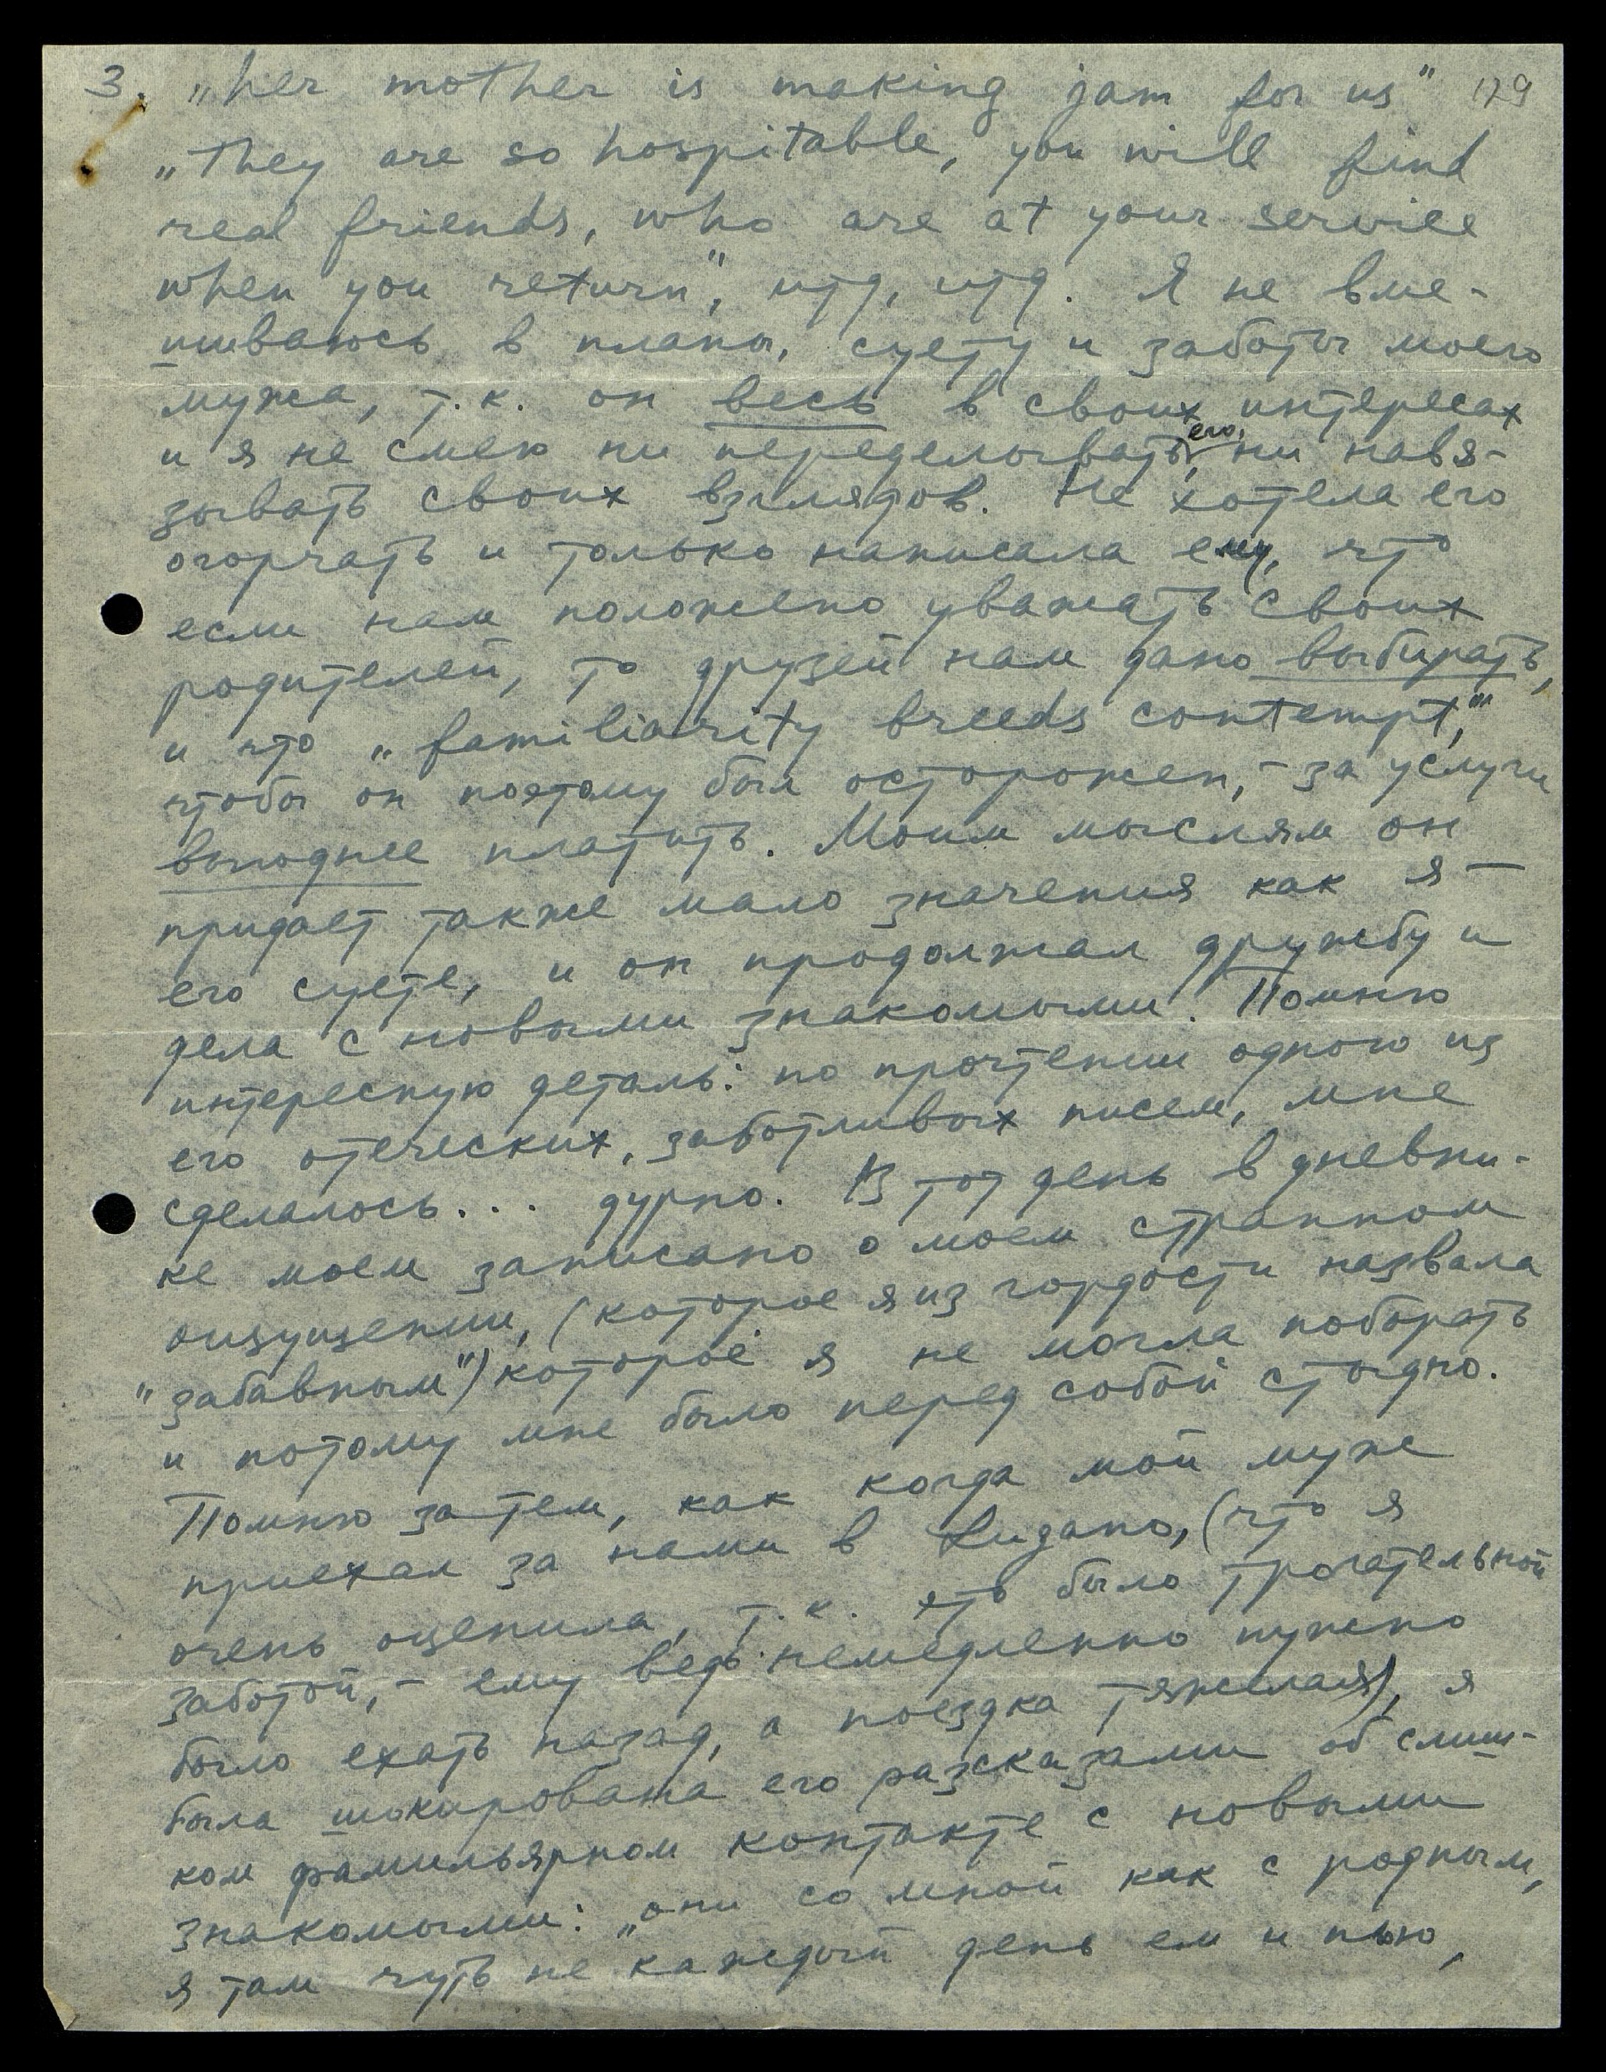 3. „her mother is making jam for us" 129
„They are so hospitable, you will find
real friends, who are at your service
when you return", итд, итд. Я не вме-
шиваюсь в планы, суету и заботы моего
мужа, т.к. он весь в своих интересах
и я не смею ни переделывать его, ни навя-
зывать своих взглядов. Не хотела его
огорчать и только написала ему, что
если нам положено уважать своих
родителей, то друзей нам дано выбирать,
и что „familiarity breeds contempt,"
чтобы он поэтому был осторожен, – за услуги
выгоднее платить. Моим мыслям он
придает также мало значения как я –
его суете, и он продолжал дружбу и
дела с новыми знакомыми. Помню
интересную деталь: по прочтении одного из
его отеческих, заботливых писем, мне
сделалось... дурно. В тот день в дневни-
ке моем записано о моем странном
ощущении, (которое я из гордости назвала
"забавным") которое я не могла побороть
и потому мне было перед собой стыдно.
Помню затем, как когда мой муж
приехал за нами в Лугано, (что я
очень оценила, т.к. это было трогательной
заботой, – ему ведь немедленно нужно
было ехать назад, а поездка тяжелая), я
была шокирована его разсказами об слиш-
ком фамильярном контакте с новыми
знакомыми: „они со мной как с родным,
я там чуть не каждый день ем и пью,